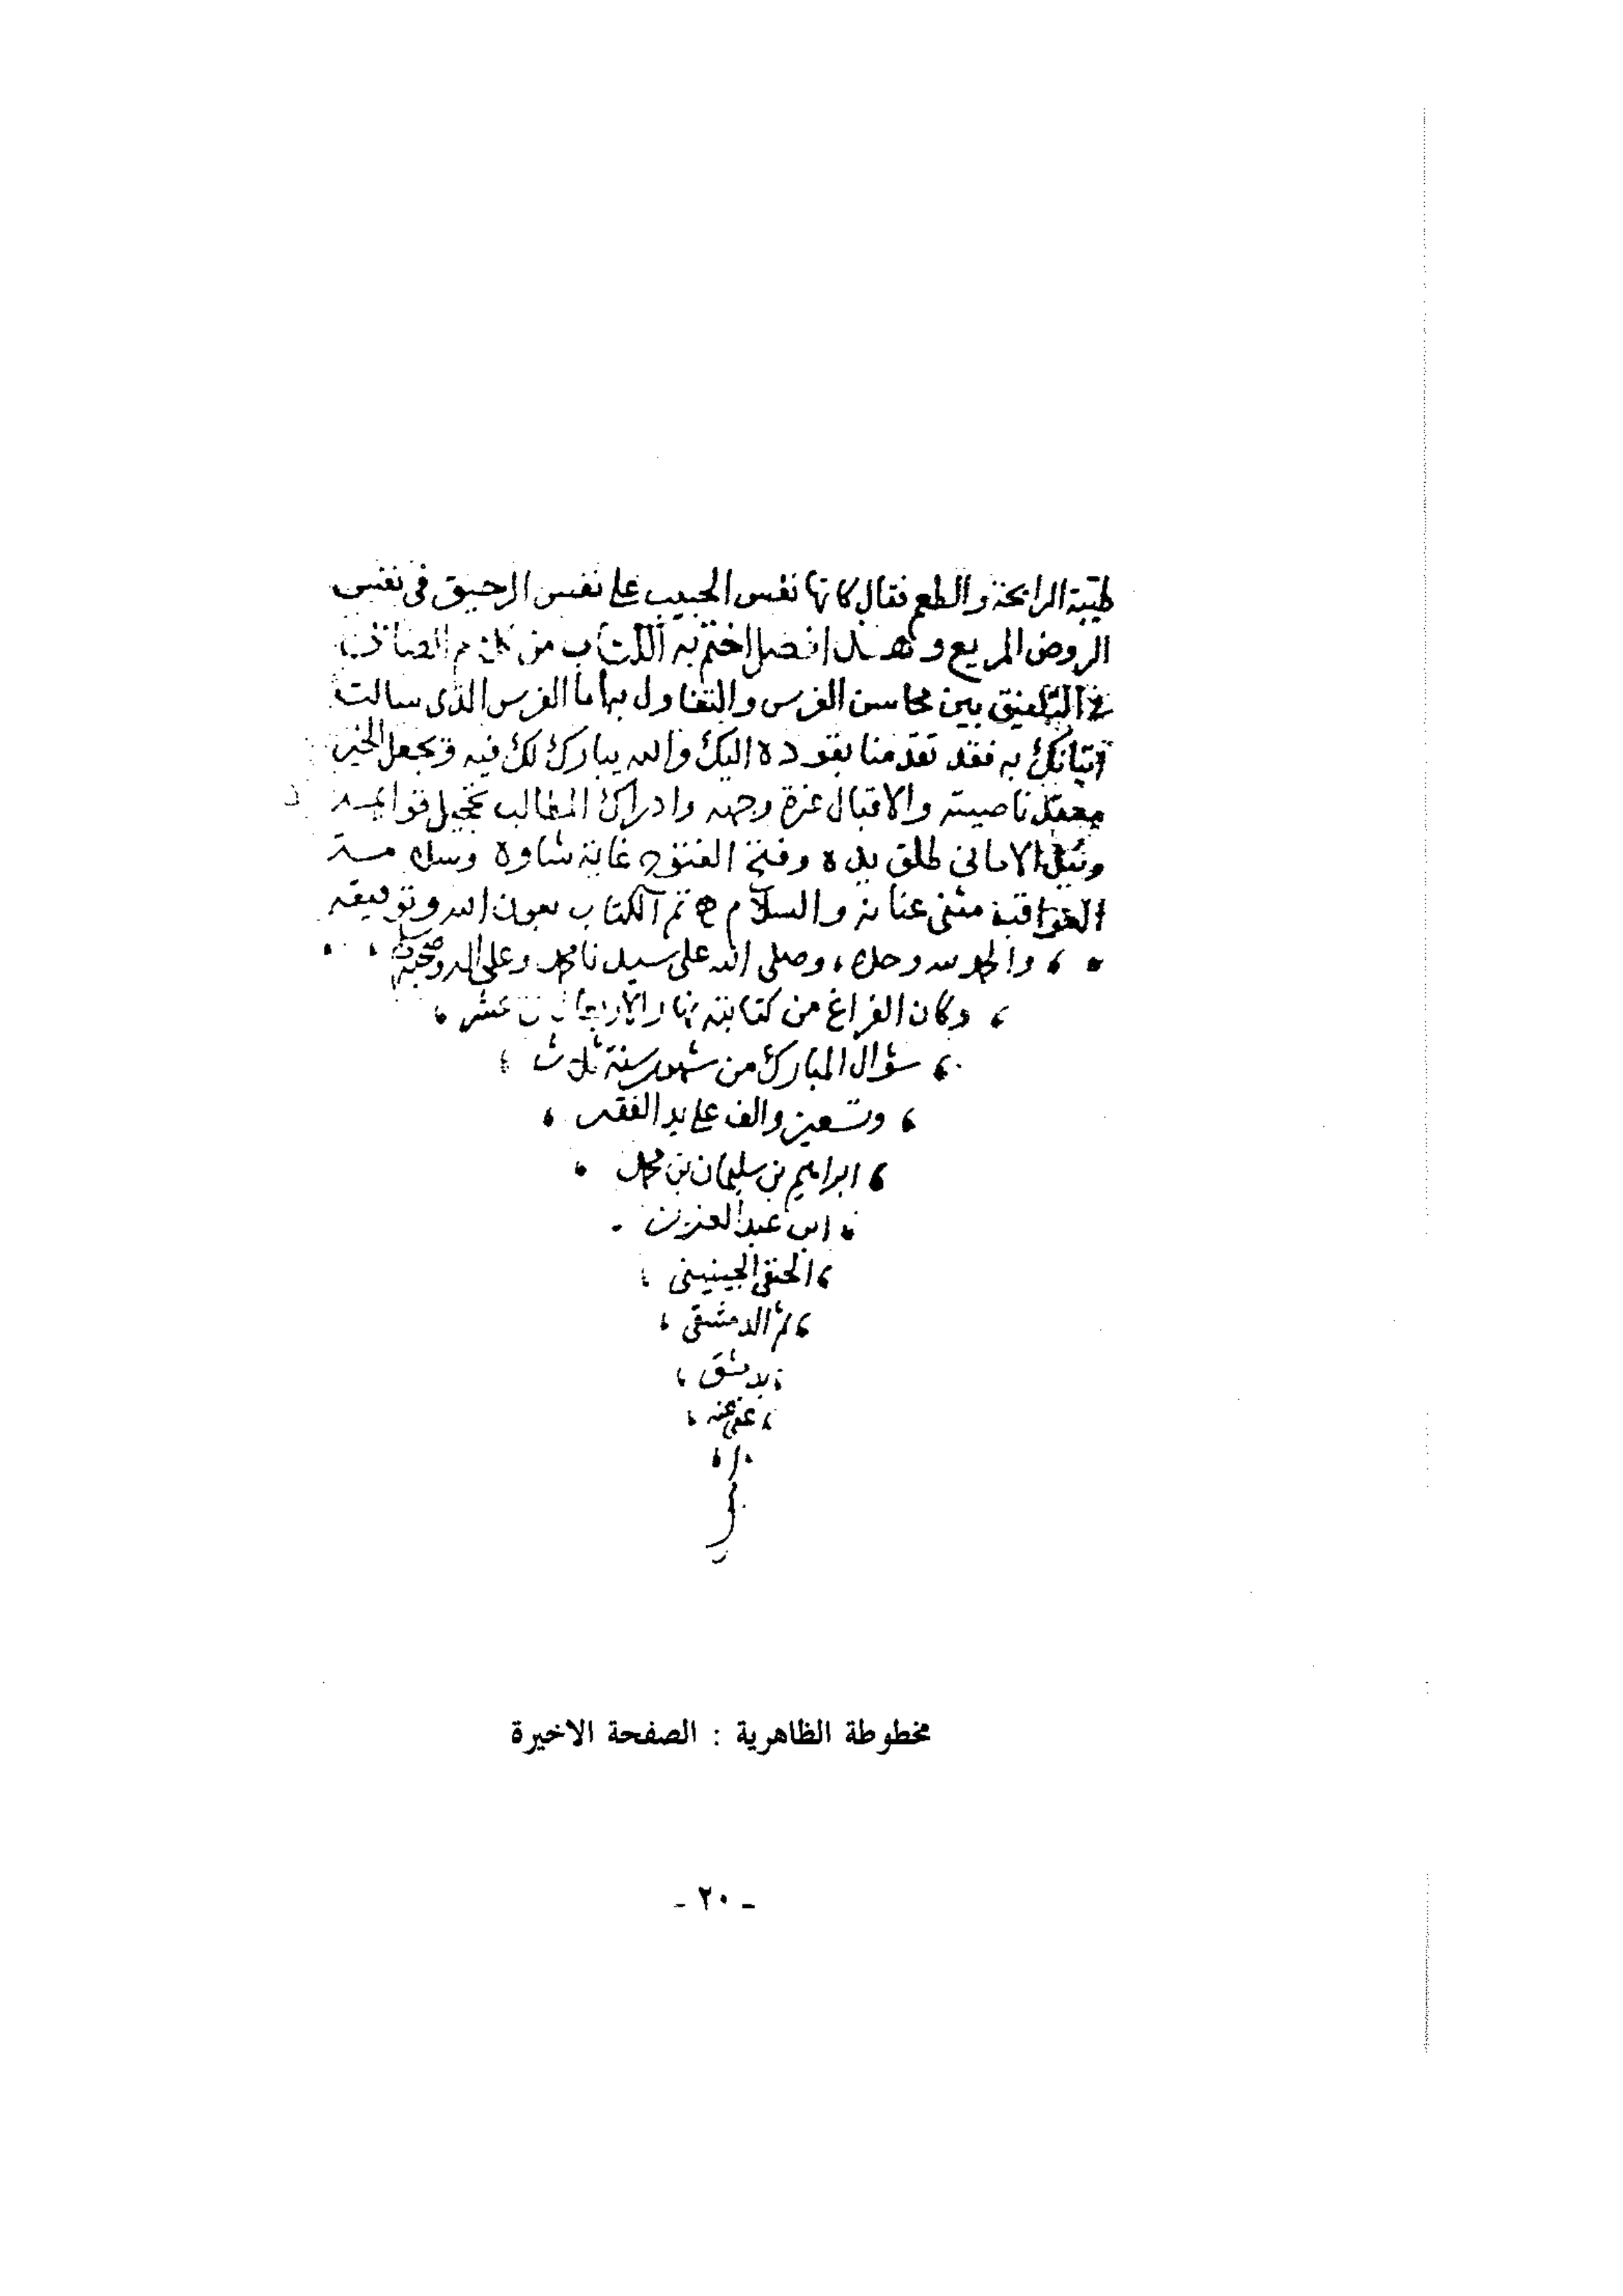 طيبة الرايحة والطعم فقال كانها نفس الحبيب على نفس الرحيق في نفس
الروض المريع وهذا فصل اختم به الكتاب من كلام الصاحب
في التلفيق بين محاسن الفرس والتفاول بها اما الفرس الذي سالت
اتيانك به فقد تقدمنا بقوده اليك والله يبارك لك فيه ويجعل الخير
معقد ناصيته والاقبال غرة وجهه وادراك المطالب تحجيل قوايمه
ونيل الاماني طلق يده وفتح الفتوح غاية شاوه وسلامة
العواقب مثنى عنانه والسلام تم الكتاب بعون الله وتوفيقه
والحمد لله وحده، وصلى الله على سيدنا محمد وعلى اله وصحبه وسلم
وكان الفراغ من كتابته نهار الاربعا عشر
شوال المبارك من شهور سنة ثلاث
وتسعين والف على يد الفقير
ابراهيم بن سليمان بن محمد
ابن عبد العزيز
الحنفي الجينيني
ثم الدمشقي
بدمشق
عفي عنه
مخطوطة الظاهرية : الصفحة الاخيرة
ـ ٢٠ ـ